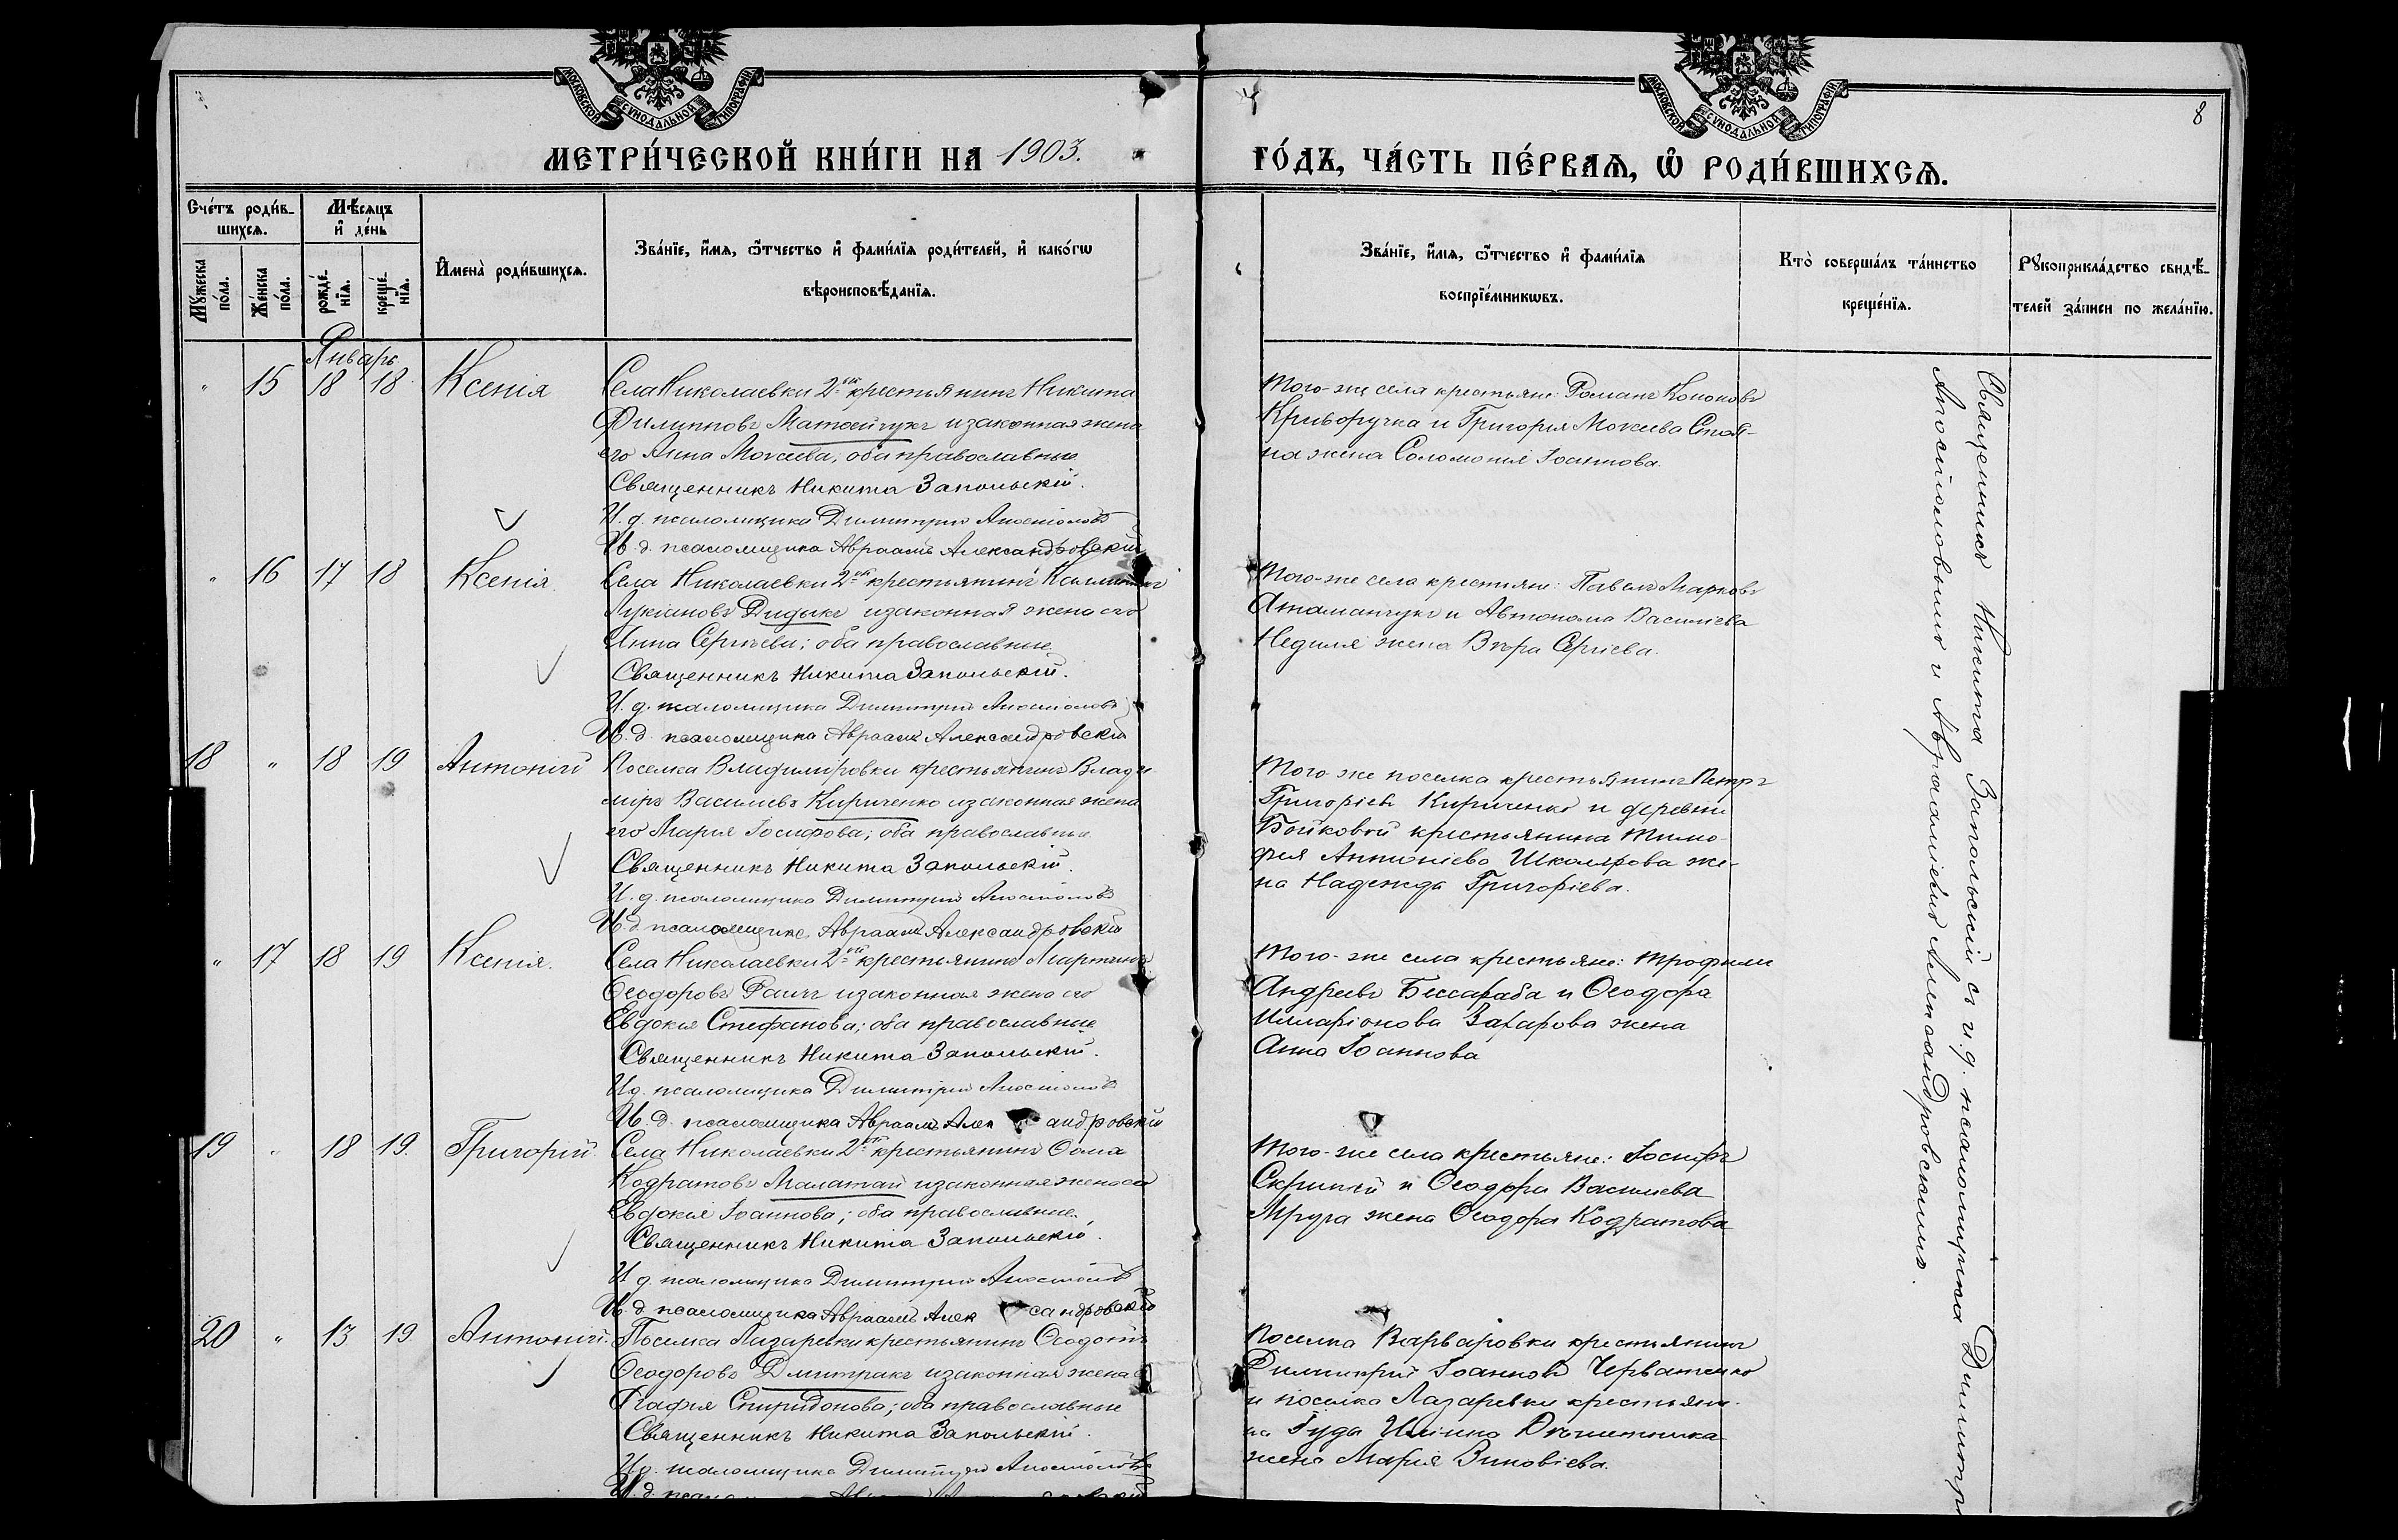 МОСКОВСКОЙ СѴНОДАЛЬНОЙ ТИПОГРАФІИ
МОСКОВСКОЙ СѴНОДАЛЬНОЙ ТИПОГРАФІИ
8
МЕТРИ́ЧЕСКОЙ КНИ́ГИ НА 1903. ГО́ДЪ, ЧА́СТЬ ПЕ́РВАѦ, Ѽ РОДИ́ВШИХСѦ.
Сче́тъ роди́в-
шихсѧ.
Мѣ́сѧцъ
и҆ де́нь
Мꙋ́жеска
по́ла.
Же́нска
по́ла.
рожде́-
нїѧ.
креще́-
нїѧ.
И҆мена̀ роди́вшихсѧ.
Зва́нїе, и҆́мѧ, ѻ҆́тчество и҆ фами́лїѧ роди́телей, и҆ како́гѡ
вѣроисповѣ́данїѧ.
Зва́нїе, и҆́мѧ, ѻ҆́тчество и҆ фами́лїѧ
воспрїе́мникѡвъ.
Кто̀ соверша́лъ та́инство
креще́нїѧ.
Рꙋкоприкла́дство свидѣ́-
телей за́писи по жела́нїю.
Январь
" 15 18 18 Ксенія
Села Николаевки 2ой крестьянинъ Никита
Филипповъ Матвійчукъ и законная жена
его Анна Мокиева, оба православные
Священникъ Никита Запольскій.
И. д. псаломщика Димитрій Апостоловъ
И. д. псаломщика Авраамъ Александровскій
Того-же села крестьяне: Романъ Кононовъ
Криворучка и Григорія Мокиева
жена Соломонія Іоаннова.
" 16 17 18 Ксенія
Села Николаевки 2ой крестьянинъ
Лукіановъ Дидыкъ и законная жена его
Анна Сергіева; оба православные
Священникъ Никита Запольскій.
И. д. псаломщика Димитрій Апостоловъ
И. д. псаломщика Авраамъ Александровскій
Того-же села крестьяне: Павелъ Марковъ
Атаманчукъ и Автонома Василіева
Недиля жена Вѣра Сергіева.
18 " 18 19 Антоній
Поселка Владиміровки крестьянинъ Влади
міръ Василіевъ Кириченко и законная жена
его Марія Іосифова; оба православные
Священникъ Никита Запольскій.
И. д. псаломщика Димитрій Апостоловъ
И. д. псаломщика Авраамъ Александровскій
Того же поселка крестьянинъ Петръ
Григоріевъ Кириченко и деревни
Бойковой крестьянина Тимо-
фея Антоніева Школярова же-
на Надежда Григоріева.
" 17 18 19 Ксенія.
Села Николаевки 2ой крестьянинъ Мартинъ
Ѳеодоровъ Раичъ и законная жена его
Евдокія Стефанова; оба православные
Священникъ Никита Запольскій.
И. д. псаломщика Димитрій Апостоловъ
И. д. псаломщика Авраамъ Александровскій
Того-же села крестьяне: Трофимъ
Андреевъ Бессараба и Ѳеодора
Илларіонова Захарова жена
Анна Іоаннова
19 " 18 19. Григорій.
Села Николаевки 2ой крестьянинъ Ѳома
Кодратовъ Малатай и законная жена его
Евдокія Іоаннова; оба православные.
Священникъ Никита Запольскій.
И. д. псаломщика Димитрій Апостоловъ
И. д. псаломщика Авраамъ Александровскій
Того-же села крестьяне: Іосифъ
Скрипній и Ѳеодора Василіева
Мруга жена Ѳеодора Кодратова
20 " 13 19 Антоній.
Поселка Лазаревки крестьянинъ Ѳеодотъ
Ѳеодоровъ Дмитракъ и законная жена
Агафія Спиридонова; оба православные
Священникъ Никита Запольскій.
И. д. псаломщика Димитрій Апостоловъ
И. д.
Поселка Варваровки крестьянинъ
Димитрій Іоанновъ Черватенко
и поселка Лазаревки крестьяни-
на Гуда Иліина
жена Марія Зиновіева.
Священникъ Никита Запольскій съ и. д. псаломщика Димитр
Апостоловымъ и Авраамомъ Александровскимъ.